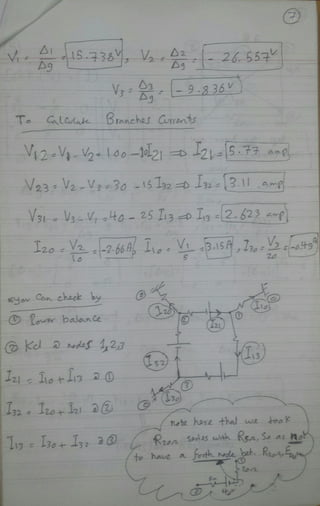 7
V1 = Δ1/Δg = 15.738V, V2 = Δ2/Δg = -26.557V
V3 = Δ3/Δg = -9.836V
To Calculate Branches Currents
V12 = V1 - V2 = 100 - 10 I21 ⇒ I21 = 5.77 amp
V23 = V2 - V3 = 30 - 15 I32 ⇒ I32 = 3.11 amp
V31 = V3 - V1 = 40 - 25 I13 ⇒ I13 = 2.623 amp
I20 = V2/10 = -2.66A, I10 = V1/5 = 3.15A, I30 = V3/20 = -0.49A
* you can check by
① Power balance
② Kcl @ nodes 1,2,3
I21 = I10 + I13 @ ①
I32 = I20 + I21 @ ②
I13 = I30 + I32 @ ③
I20
I21
I10
I13
I32
I30
note here that we took
R20Ω series with R5Ω, so as not
to have a forth node bet. R20Ω, E40V